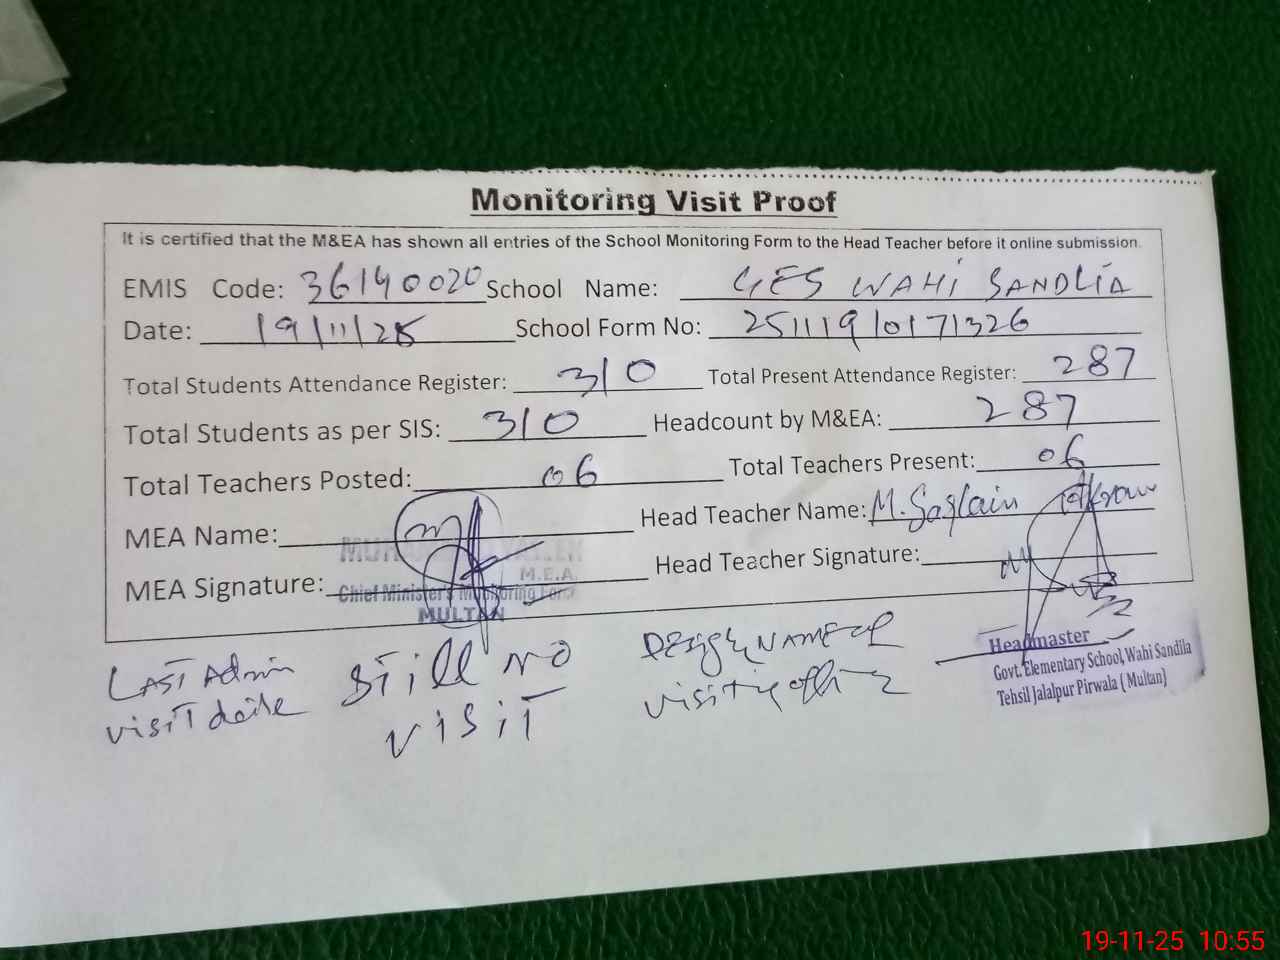 Monitoring Visit Proof
It is certified that the M&EA has shown all entries of the School Monitoring Form to the Head Teacher before it online submission.
EMIS Code: 36140020 School Name: GES WAHI SANDLIA
Date: 19/11/25 School Form No: 251119/0171326
Total Students Attendance Register: 310 Total Present Attendance Register: 287
Total Students as per SIS: 310 Headcount by M&EA: 287
Total Teachers Posted: 06 Total Teachers Present: 06
MEA Name: Head Teacher Name: M. Saqlain
MEA Signature: Head Teacher Signature:
M.E.A.
Chief Minister's Monitoring Force
MULTAN
Headmaster
Govt. Elementary School, Wahi Sandila
Tehsil Jalalpur Pirwala ( Multan)
LAST Admin
visit date
Still NO
VISIT
NAME of
19-11-25 10:55